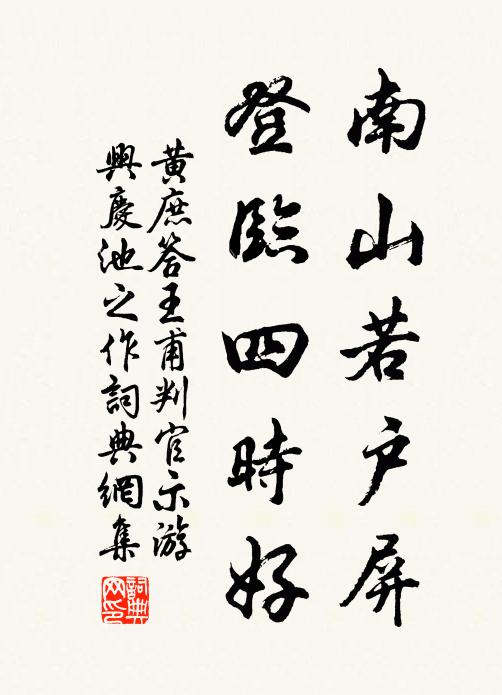 南山若户屏
登臨四時好
黄庶答王甫判官示游
興慶池之作詞典網集
詞典
网印